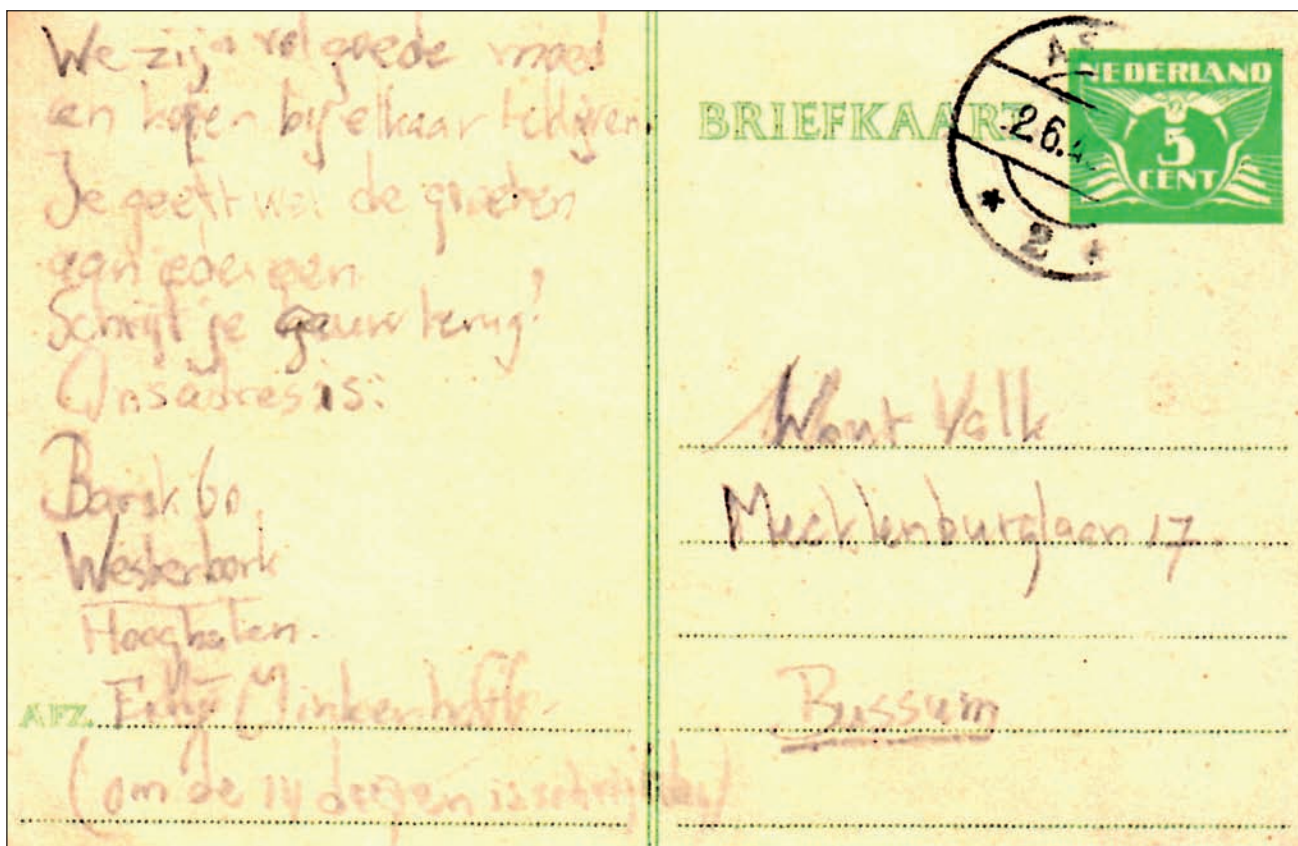 We zijn vol goede moed
en hopen bij elkaar te blijven.
Je geeft wel de groeten
aan iedereen.
Schrijf je gauw terug!
Ons adres is:
Barak 60.
Westerbork
Hooghalen.
AFZ. Minkenhof
(om de 14 dagen is schrijfdag)
BRIEFKAART
NEDERLAND
5
CENT
AS
26.4
* 2 *
Wout Valk
Mecklenburglaan 17.
Bussum